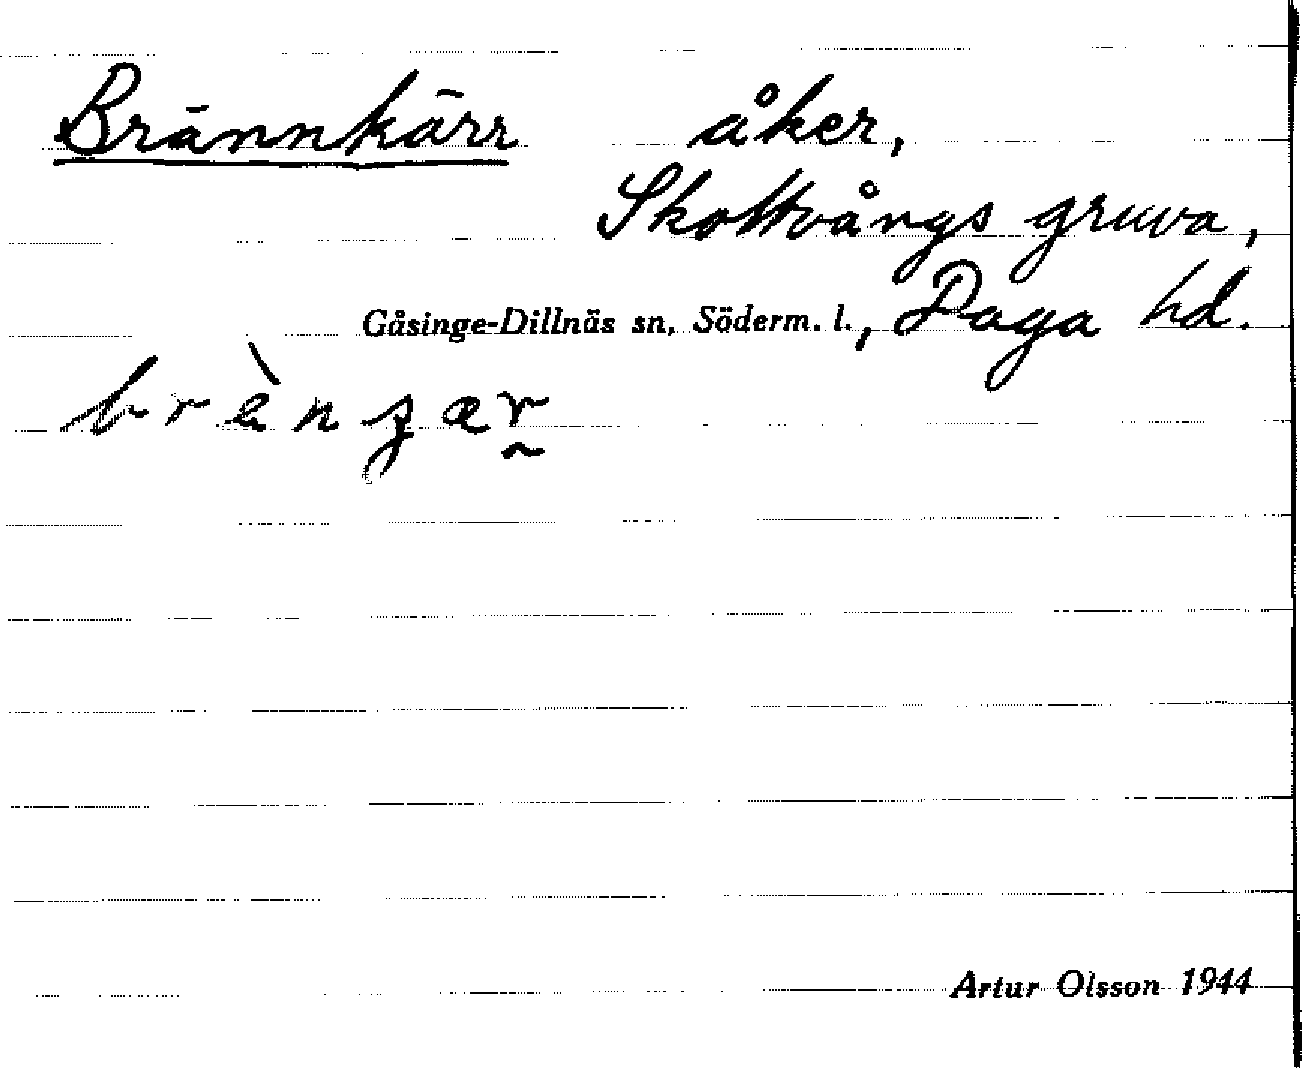 Brännkärr åker,
Skottvångs gruva,
Gåsinge-Dillnäs sn, Söderm. l., Daga hd.
Artur Olsson 1944